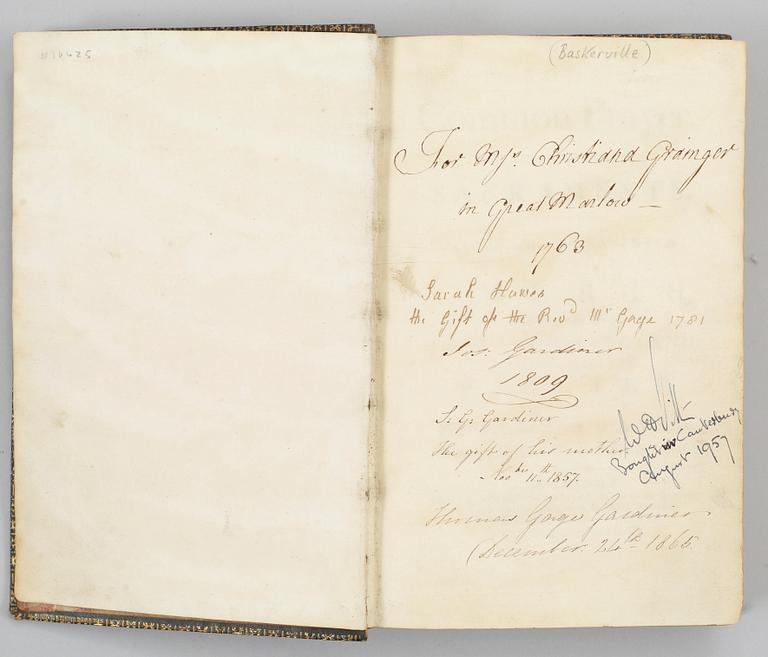 (Baskerville)
For Mrs. Christiana Grainger
in Great Marlow —
1763
Sarah Hawes
the Gift of the Revd Mr Gage 1781
Jos: Gardiner
1809
S. G. Gardiner
The gift of his mother
Novbr 11th 1857.
Bought in Canterbury
August 1957
Thomas Gage Gardiner
(December 24th 1865.